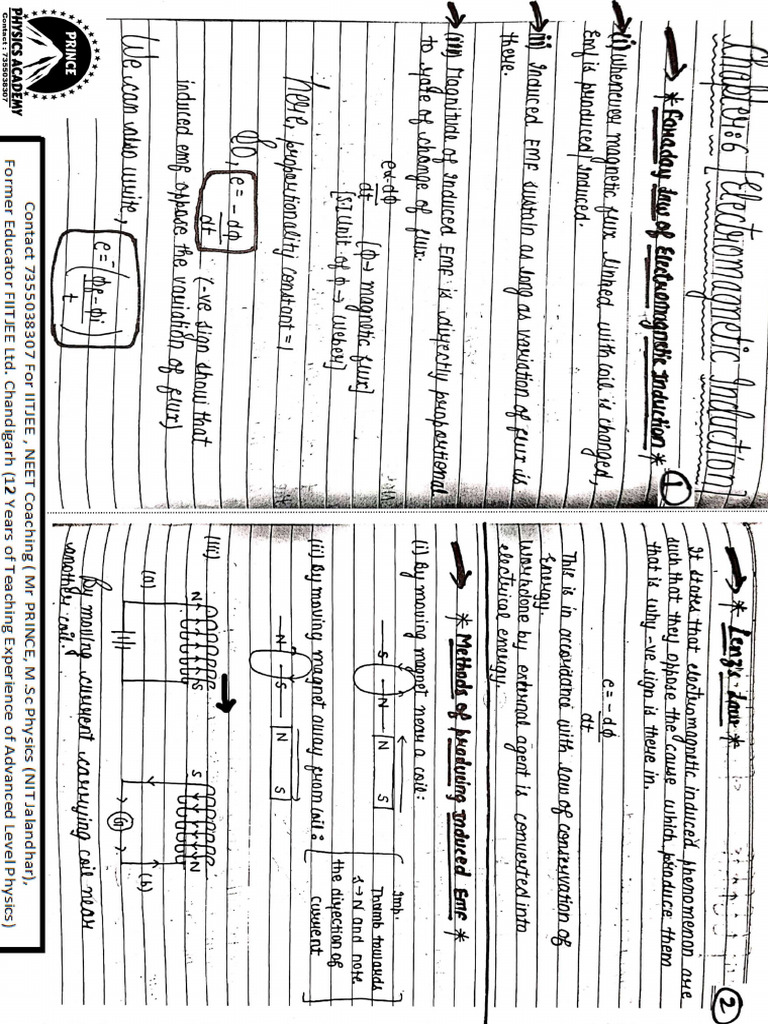 Chapter:6 [Electromagnetic Induction]
①
* Faraday law of Electromagnetic Induction *
(i) whenever magnetic flux linked with coil is changed,
Emf is produced/induced.
ii) Induced EMF sustain as long as variation of flux is
there.
(iii) Magnitude of induced EMF is directly proportional
to rate of change of flux.
e∝ dϕ/dt [ϕ→ magnetic flux]
[SI Unit of ϕ → weber]
here, proportionality constant = 1
So, e = - dϕ/dt (-ve sign show that
induced emf oppose the variation of flux)
We can also write,
e = -(ϕf - ϕi / t)
②
* Lenz's Law *
It states that electromagnetic induced phenomenon are
such that they oppose the cause which produce them
that is why -ve sign is there in.
e = - dϕ/dt
This is in accordance with law of conservation of
Energy.
Workdone by external agent is converted into
electrical energy.
* Methods of producing induced Emf *
(i) by moving magnet near a coil:
S N N S
(ii) by moving magnet away from coil:
N S N S
Imp.
Thumb towards
S→N and note
the direction of
current
(iii)
N S S N
G
(a) (b)
By moving current carrying coil near
another coil.
PRINCE
PHYSICS ACADEMY
Contact : 7355038307
Contact 7355038307 For IITJEE , NEET Coaching ( Mr PRINCE, M.Sc Physics (NIT Jalandhar),
Former Educator FIITJEE Ltd. Chandigarh (12 Years of Teaching Experience of Advanced Level Physics)